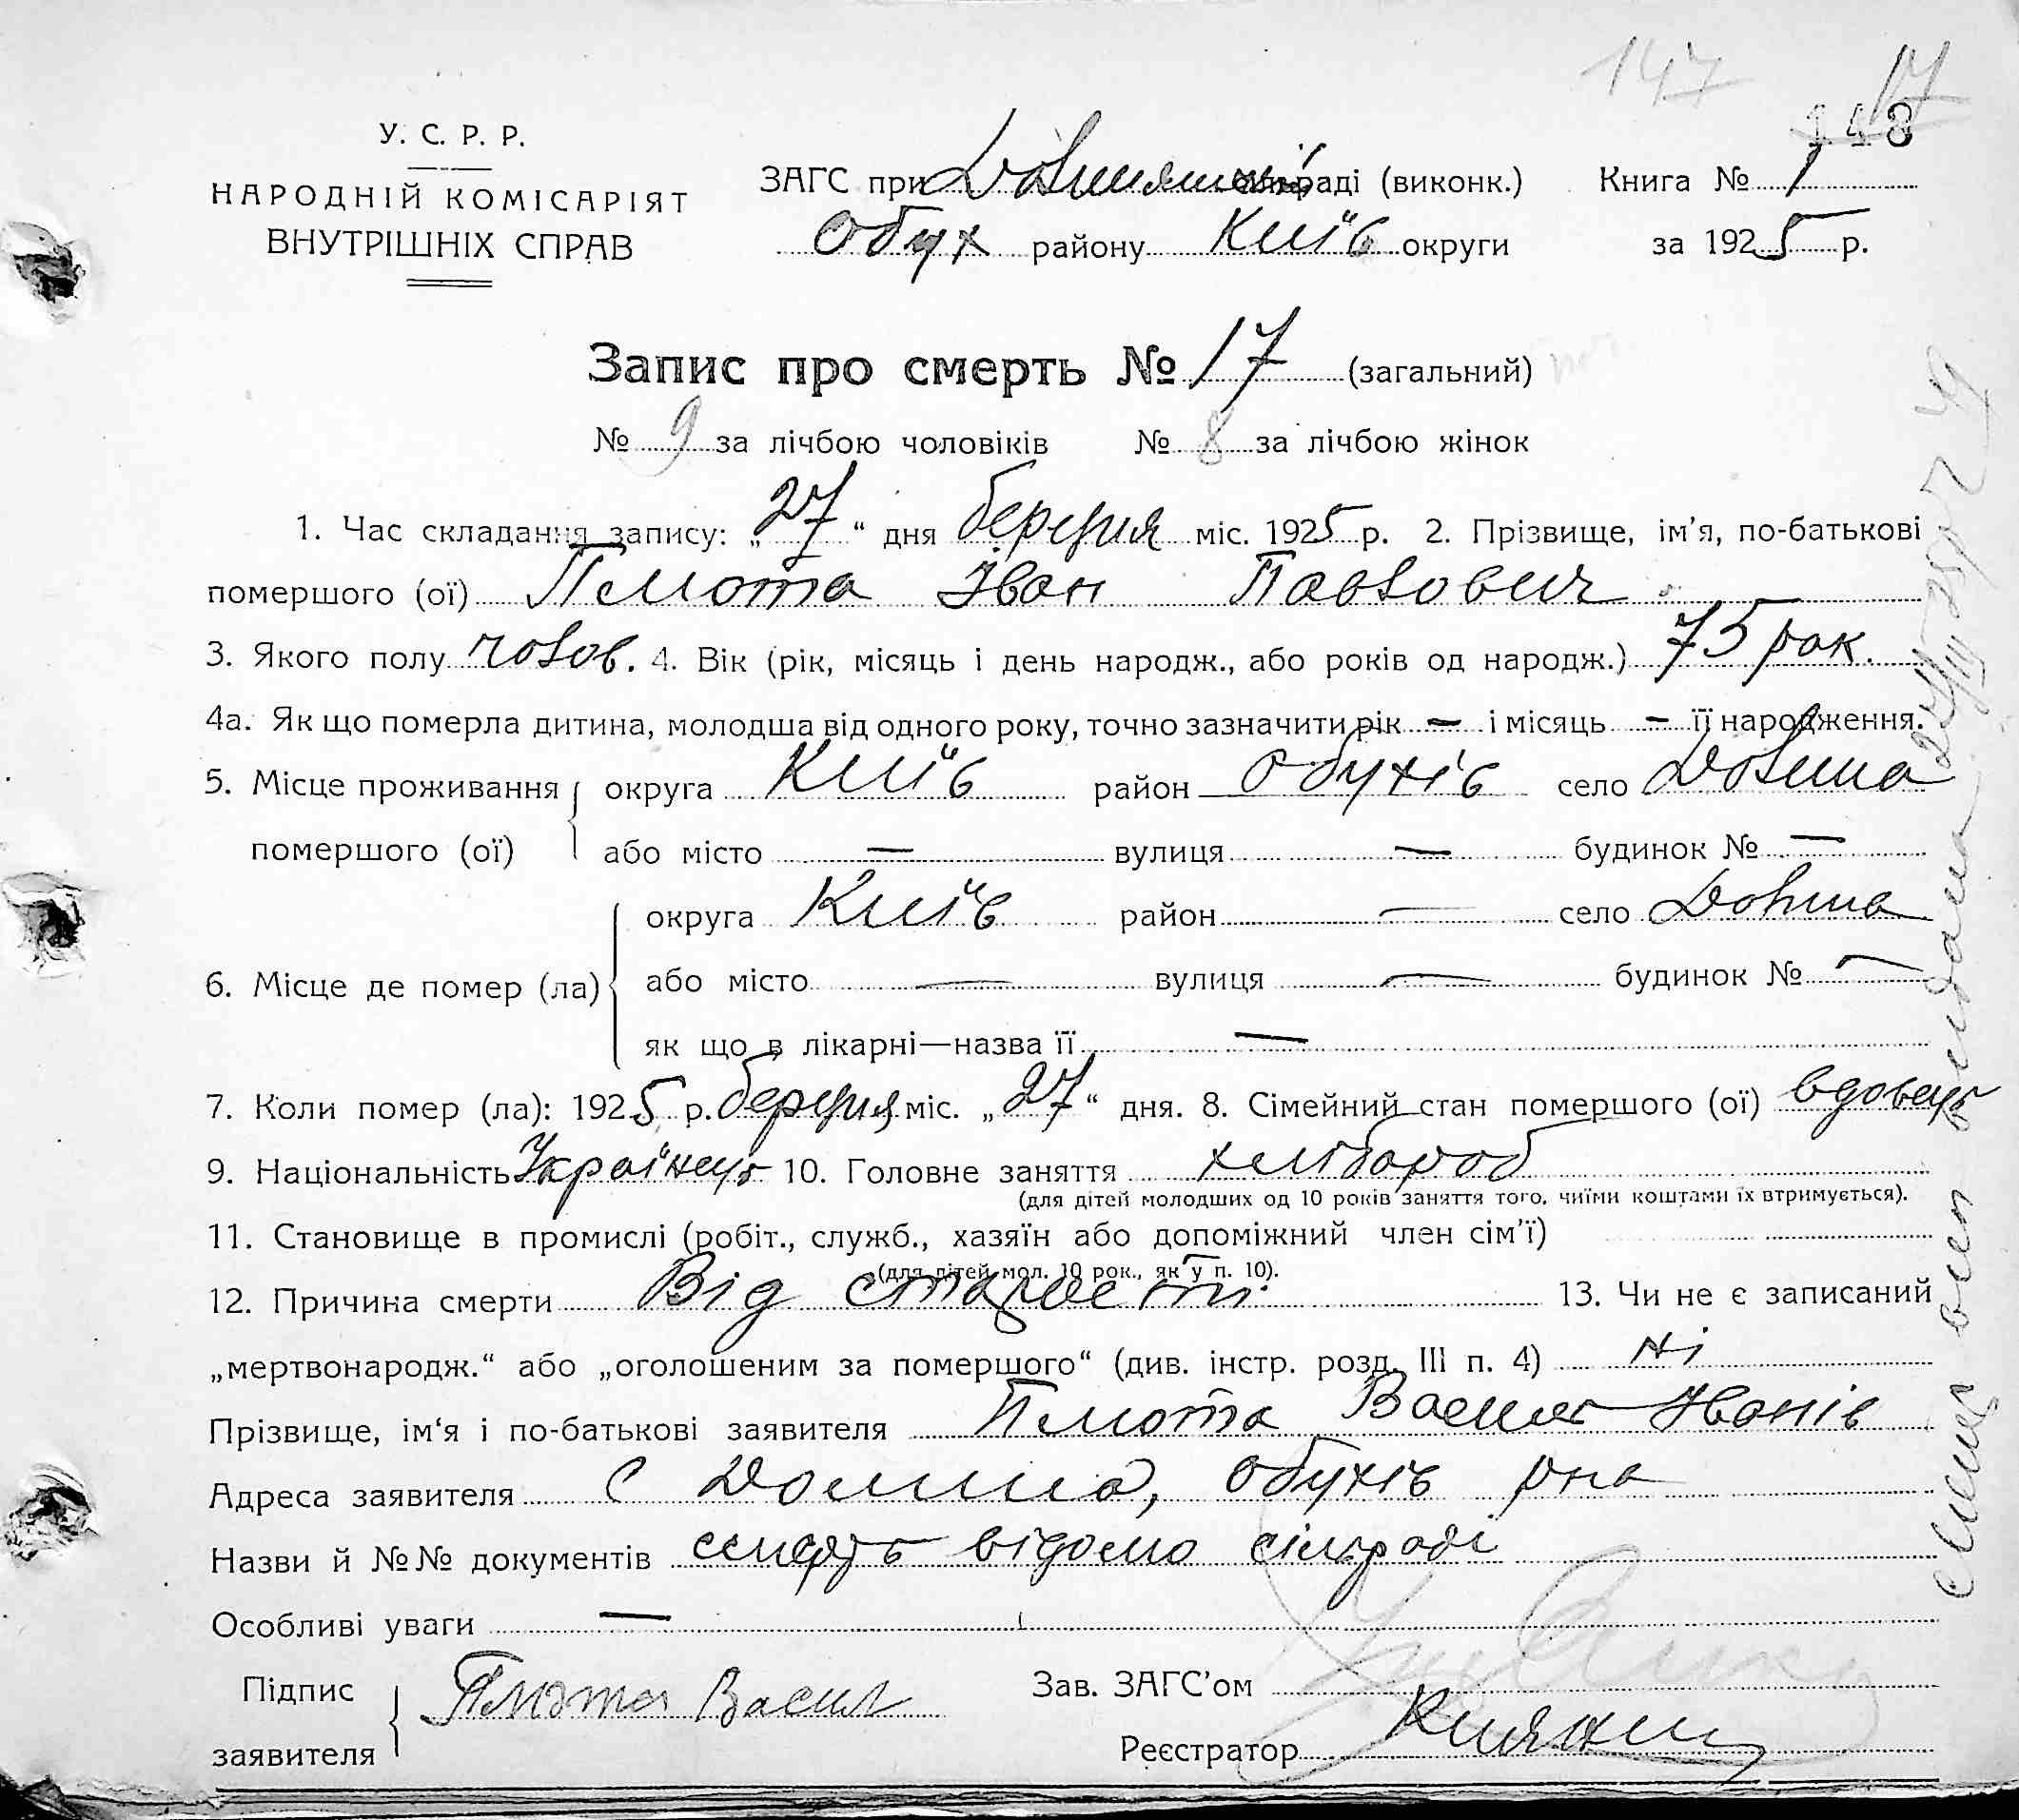 147 17
148
У. С. Р. Р.
НАРОДНІЙ КОМІСАРІЯТ
ВНУТРІШНІХ СПРАВ
ЗАГС при Долинянські раді (виконк.) Книга № 1
Обух району Київ округи за 1925 р.
Запис про смерть № 17 (загальний)
№ 9 за лічбою чоловіків № 8 за лічбою жінок
1. Час складання запису: „27“ дня березня міс. 1925 р. 2. Прізвище, ім’я, по-батькові
помершого (ої) Плюта Іван Павлович
3. Якого полу чолов. 4. Вік (рік, місяць і день народж., або років од народж.) 75 рок.
4а. Як що померла дитина, молодша від одного року, точно зазначити рік — і місяць — її народження.
5. Місце проживання округа Київ район Обухів село Долина
помершого (ої) або місто — вулиця — будинок № —
округа Київ район — село Долина
6. Місце де помер (ла) або місто — вулиця — будинок № —
як що в лікарні—назва її —
7. Коли помер (ла): 1925 р. березня міс. „27“ дня. 8. Сімейний стан помершого (ої) вдовець
9. Національність Українець 10. Головне заняття хлібороб
(для дітей молодших од 10 років заняття того, чиїми коштами їх втримується).
11. Становище в промислі (робіт., служб., хазяїн або допоміжний член сім’ї)
(для дітей мол. 10 рок., як у п. 10).
12. Причина смерти Від старости. 13. Чи не є записаний
„мертвонародж.“ або „оголошеним за помершого“ (див. інстр. розд. III п. 4) Ні
Прізвище, ім‘я і по-батькові заявителя Плюта Василь Іванів
Адреса заявителя с Долина, Обухів рна
Назви й №№ документів смерть відомо сільраді
Особливі уваги —
Підпис Плюта Васил Зав. ЗАГС’ом
заявителя Реєстратор Кияниц